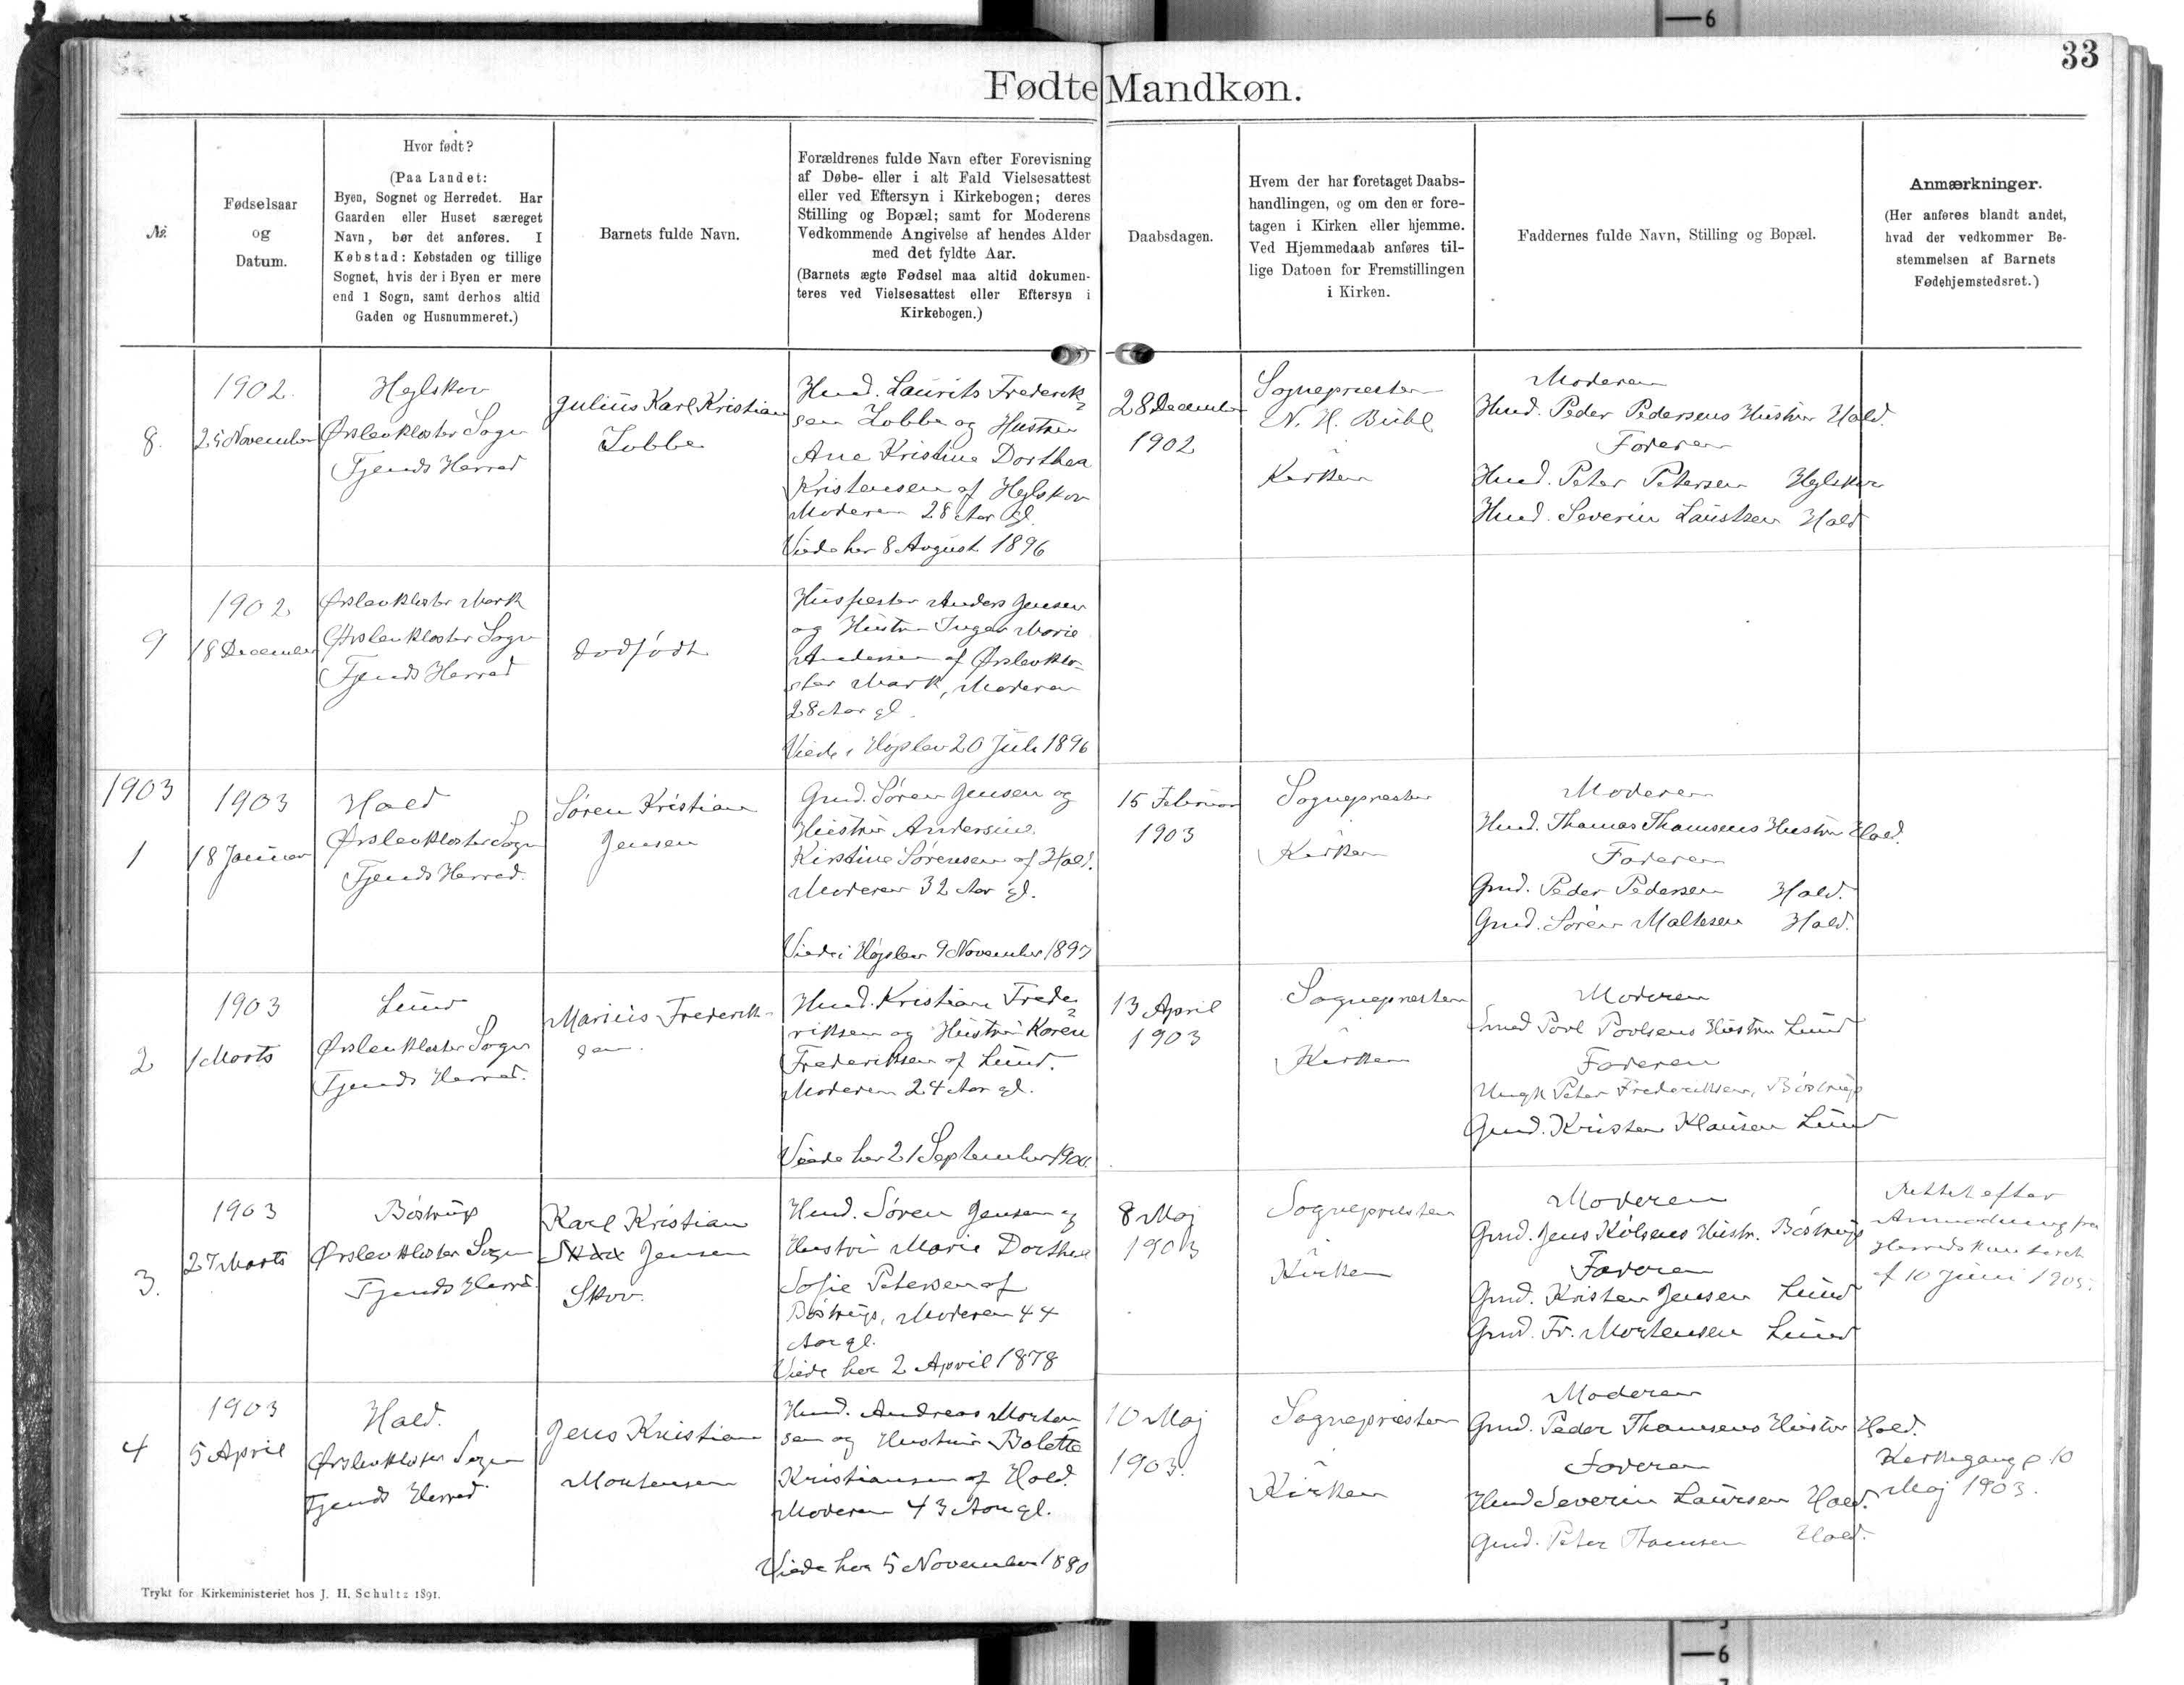 33
Fødte Mandkøn.
№.
Fødselsaar
og
Datum.
Hvor født?
(Paa Landet:
Byen, Sognet og Herredet. Har
Gaarden eller Huset særeget
Navn, bør det anføres. I
Købstad: Købstaden og tillige
Sognet, hvis der i Byen er mere
end 1 Sogn, samt derhos altid
Gaden og Husnummeret.)
Barnets fulde Navn.
Forældrenes fulde Navn efter Forevisning
af Døbe- eller i alt Fald Vielsesattest
eller ved Eftersyn i Kirkebogen; deres
Stilling og Bopæl; samt for Moderens
Vedkommende Angivelse af hendes Alder
med det fyldte Aar.
(Barnets ægte Fødsel maa altid dokumen-
teres ved Vielsesattest eller Eftersyn i
Kirkebogen.)
Daabsdagen.
Hvem der har foretaget Daabs-
handlingen, og om den er fore-
tagen i Kirken eller hjemme.
Ved Hjemmedaab anføres til-
lige Datoen for Fremstillingen
i Kirken.
Faddernes fulde Navn, Stilling og Bopæl.
Anmærkninger.
(Her anføres blandt andet,
hvad der vedkommer Be-
stemmelsen af Barnets
Fødehjemstedsret.)
8.
1902.
25 November
Heglskov
Ørslevkloster Sogn
Fjends Herred
Julius Karl Kristian
Lobbe
Husd. Laurits Frederik
sen Lobbe og Hustru
Ane Kristine Dorthea
Kristensen af Heglskov
Moderen 28 Aar gl.
Viede her 8 August 1896
28 December
1902
Sognepræsten
N. H. Buhl
Kirken
Moderen
Husd. Peder Pedersens Hustru Hald.
Faderen
Husd. Peter Petersen Heglskov
Husd. Severin Laustsen Hald
9
1902
18 December
Ørslevkloster Mark
Ørslevkloster Sogn
Fjends Herred
dødfødt
Husfæster Anders Jensen
og Hustru Inger Marie
Andersen af Ørslevklo-
ster Mark, Moderen
28 Aar gl.
Viede i Højslev 20 Juli 1896
1903
1
1903
18 Januar
Hald
Ørslevkloster Sogn
Fjends Herred.
Søren Kristian
Jensen
Grud. Søren Jensen og
Hustru Andersine
Kirstine Sørensen af Hald.
Moderen 32 Aar gl.
Viede i Højslev 9 November 1897
15 Februar
1903
Sognepræsten
Kirken
Moderen
Husd. Thomas Thomsens Hustru Hald.
Faderen
Grud. Peder Pedersen Hald.
Grud. Søren Maltesen Hald.
2
1903
1 Marts
Lund
Ørslevkloster Sogn
Fjends Herred.
Marius Frederik-
sen.
Husd. Kristian Frede-
riksen og Hustru Karen
Frederiksen af Lund.
Moderen 24 Aar gl.
Viede her 21 September 1900.
13 April
1903
Sognepræsten
Kirken
Moderen
Smed Povl Povlsens Hustru Lund
Faderen
Ungk. Peter Frederiksen, Bøstrup
Grud. Kristen Klausen Lund
3.
1903
27 Marts
Bøstrup
Ørslevkloster Sogn
Fjends Herred.
Karl Kristian
Skov Jensen
Skov.
Husd. Søren Jensen og
Hustru Marie Dorthea
Sofie Petersen af
Bøstrup, Moderen 44
Aar gl.
Viede her 2 April 1878
8 Maj
1903
Sognepræsten
Kirken
Moderen
Grud. Jens Kølsens Hustr. Bøstrup
Faderen
Grud. Kristen Jensen Lund
Grud. Fr. Mortensen Lund
Rettet efter
Anmodning fra
Herredskontoret
af 10 Juni 1905.
4
1903
5 April
Hald.
Ørslevkloster Sogn
Fjends Herred.
Jens Kristian
Mortensen
Husd. Andreas Morten
sen og Hustru Bolette
Kristiansen af Hald.
Moderen 43 Aar gl.
Viede her 5 November 1880
10 Maj
1903.
Sognepræsten
Kirken
Moderen
Grud. Peder Thomsens Hustru Hald.
Faderen
Husd Severin Laursen Hald.
Grud. Peter Thomsen Hald.
Kirkegang 10
Maj 1903.
Trykt for Kirkeministeriet hos J. H. Schultz 1891.
6
6